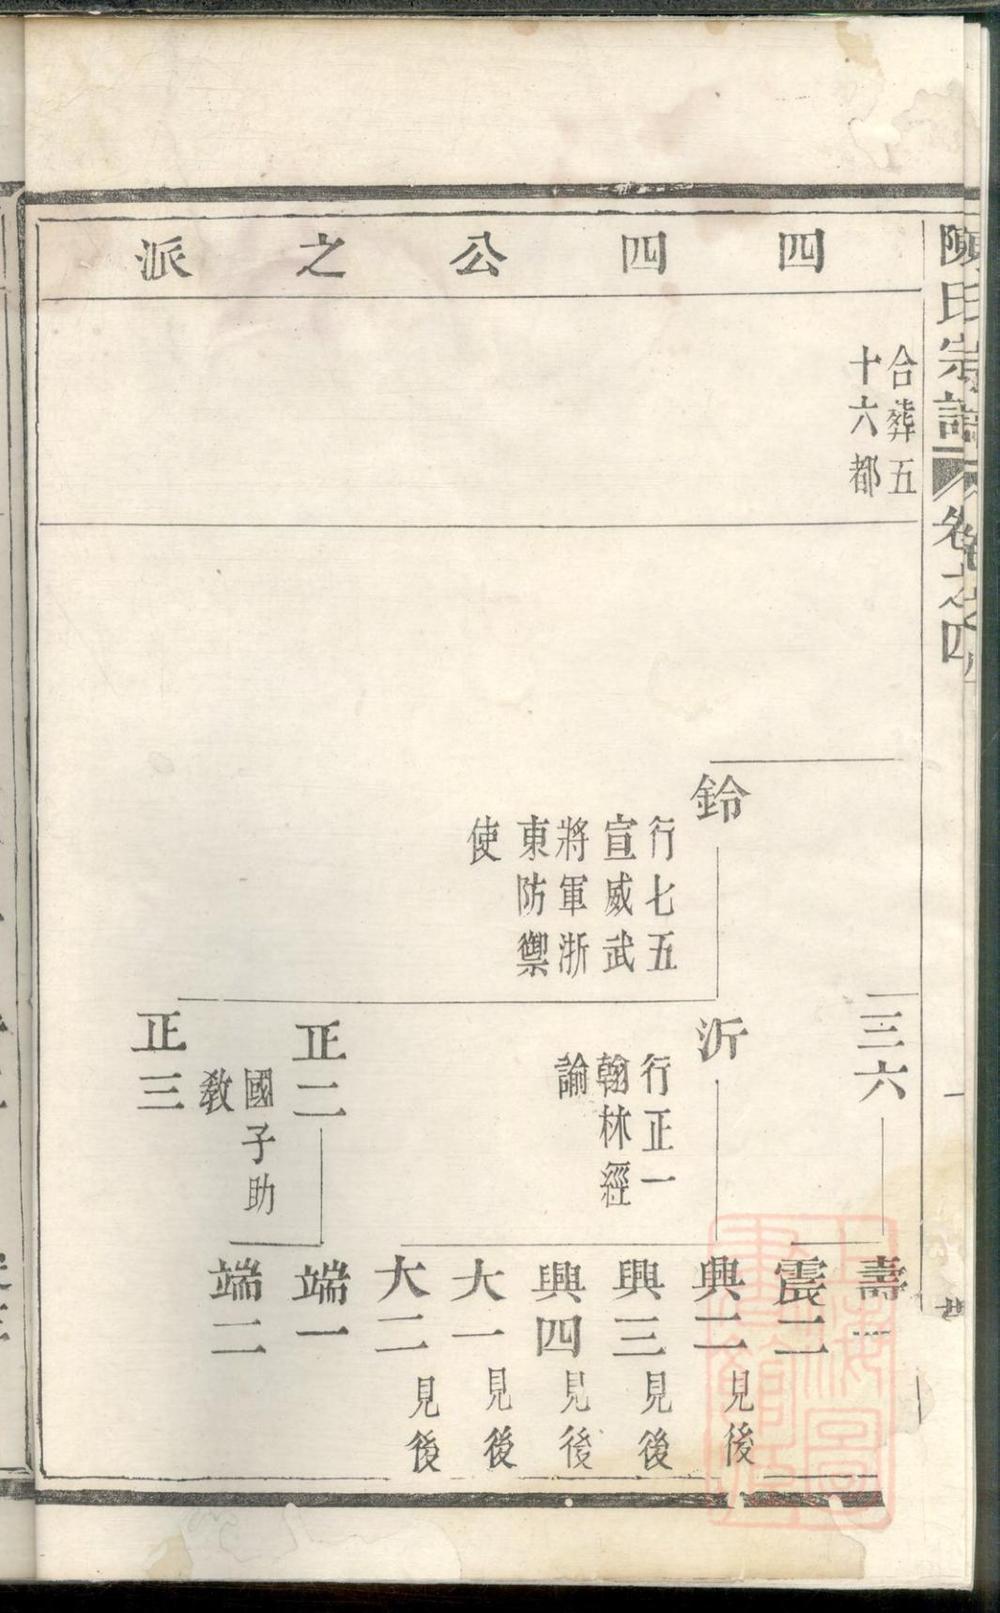 陳氏宗譜
卷之四
四四公之派
合葬五
十六都
鈴
行七五
宣威武
將軍浙
東防禦
使
三六
沂
行正一
翰林經
諭
正二
國子助
教
正三
壽一
震二
興二 見後
興三 見後
興四 見後
大一 見後
大二 見後
端一
端二